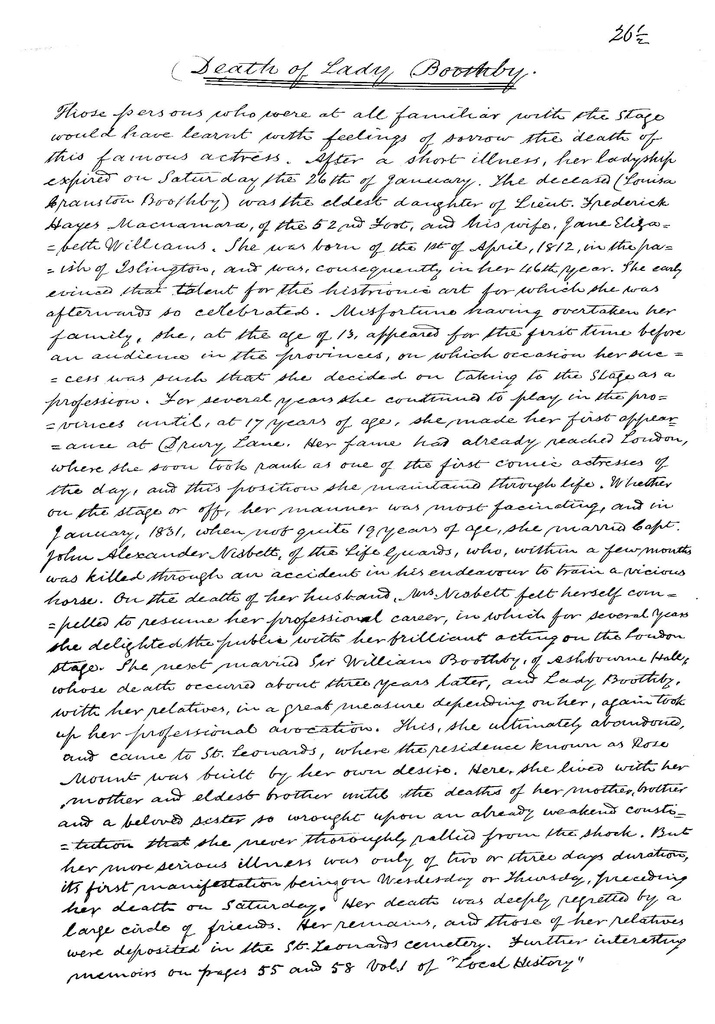 26½
(Death of Lady Boothby.
Those persons who were at all familiar with the Stage
would have learnt with feelings of sorrow the death of
this famous actress. After a short illness, her ladyship
expired on Saturday the 26th of January. The deceased (Louisa
Cranston Boothby) was the eldest daughter of Lieut. Frederick
Hayes Macnamara, of the 52nd Foot, and his wife, Jane Eliza=
=beth Williams. She was born of the 1st of April, 1812, in the pa=
=ish of Islington, and was, consequently in her 46th year. She early
evinced that talent for the histrionic art for which she was
afterwards so celebrated. Misfortune having overtaken her
family, she, at the age of 13, appeared for the first time before
an audience in the provinces, on which occasion her suc=
=cess was such that she decided on taking to the Stage as a
profession. For several years she continued to play in the pro=
=vinces until, at 17 years of age, she made her first appear=
=ance at Drury Lane. Her fame had already reached London,
where she soon took rank as one of the first comic actresses of
the day, and this position she maintained through life. Whether
on the stage or off, her manner was most facinating, and in
January, 1831, when not quite 19 years of age, she married Capt.
John Alexander Nesbett, of the Life Guards, who, within a few months
was killed through an accident in his endeavour to train a vicious
horse. On the death of her husband, Mrs Nesbett felt herself com=
=pelled to resume her professional career, in which for several years
she delighted the public with her brilliant acting on the London
stage. She next married Sir William Boothby, of Ashbourne Hall,
whose death occurred about three years later, and Lady Boothby,
with her relatives, in a great measure depending on her, again took
up her professional avocation. This, she ultimately abandoned,
and came to St. Leonards, where the residence known as Rose
Mount was built by her own desire. Here, she lived with her
mother and eldest brother until the deaths of her mother, brother
and a beloved sister so wrought upon an already weakend consti=
=tution that she never thoroughly rallied from the shock. But
her more serious illness was only of two or three days duration,
its first manifestation being on Wesdesday or Thursday, preceding
her death on Saturday. Her death was deeply regretted by a
large circle of friends. Her remains, and those of her relatives
were deposited in the St. Leonards cemetery. Further interesting
memoirs on pages 55 and 58 Vol. 1 of "Local History"